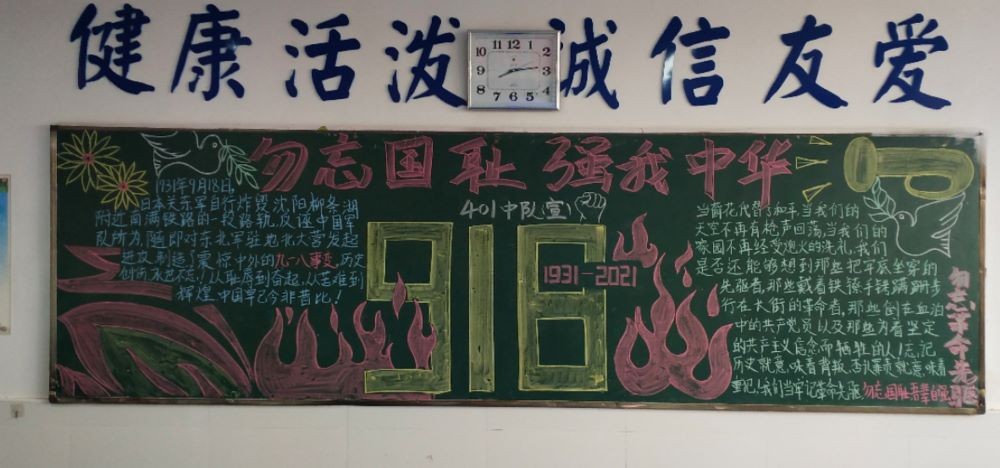 健康活泼 诚信友爱
11 12 1
10 2
9 3
8 4
7 6 5
勿忘国耻 强我中华
401中队(宣)
1931年9月18日,
日本关东军自行炸毁沈阳柳条湖
附近南满铁路的一段路轨,反诬中国军
队所为,随即对东北军驻地北大营发起
进攻,制造了震惊中外的九一八事变,历史
创伤永世不忘!从耻辱到奋起,从苦难到
辉煌,中国早已今非昔比!
918
1931-2021
当鲜花代替了和平,当我们的
天空不再有枪声回荡,当我们的
家园不再经受炮火的洗礼,我们
是否还能够想到那些把牢底坐穿的
先驱者,那些戴着铁锤手铐蹒跚步
行在大街的革命者,那些倒在血泊
中的共产党员以及那些为着坚定
的共产主义信念而牺牲的人!忘记
历史就意味着背叛,
就意味着
我们当牢记革命先驱,勿忘国耻
勿忘革命先驱